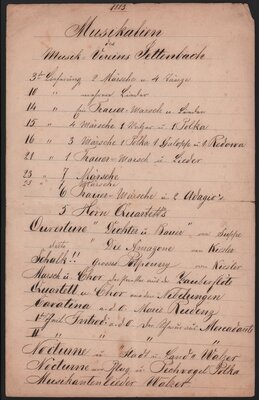 Musikalien
des
Musik Vereins Settenbach
3te Lieferung 2 Märsche u 4 Tänze
10 " mehrere Lieder
14 " für Trauer-Marsch u Lieder
15 " 4 Märsche 1 Walzer u 1 Polka
16 " 3 Marsche 1 Polka 1 Galopp u 1 Redowa
21 " 1 Trauer-Marsch u Lieder
23 " 7 Märsche
" 7 Märsche
" 6 Trauer-Märsche u 2 Adagio's
5 Horn Quartetts
Ouverture "Dichter u Bauer" von Suppe
dito "Die Amazone" von Kiesler
Schatk!! Grosse Potpourry von Kiesler
Marsch u Chor der Zauberflöte
Quartett u Chor aus den Nibelungen
Cavatina a. d. O. Maria
1te Theil Introd: a. d. O. Der Schwur von Mercadante
II " "
Nocturne u Stadt u Land's Walzer
Nocturne u Pechvogel Polka
Musikantenlieder Walzer